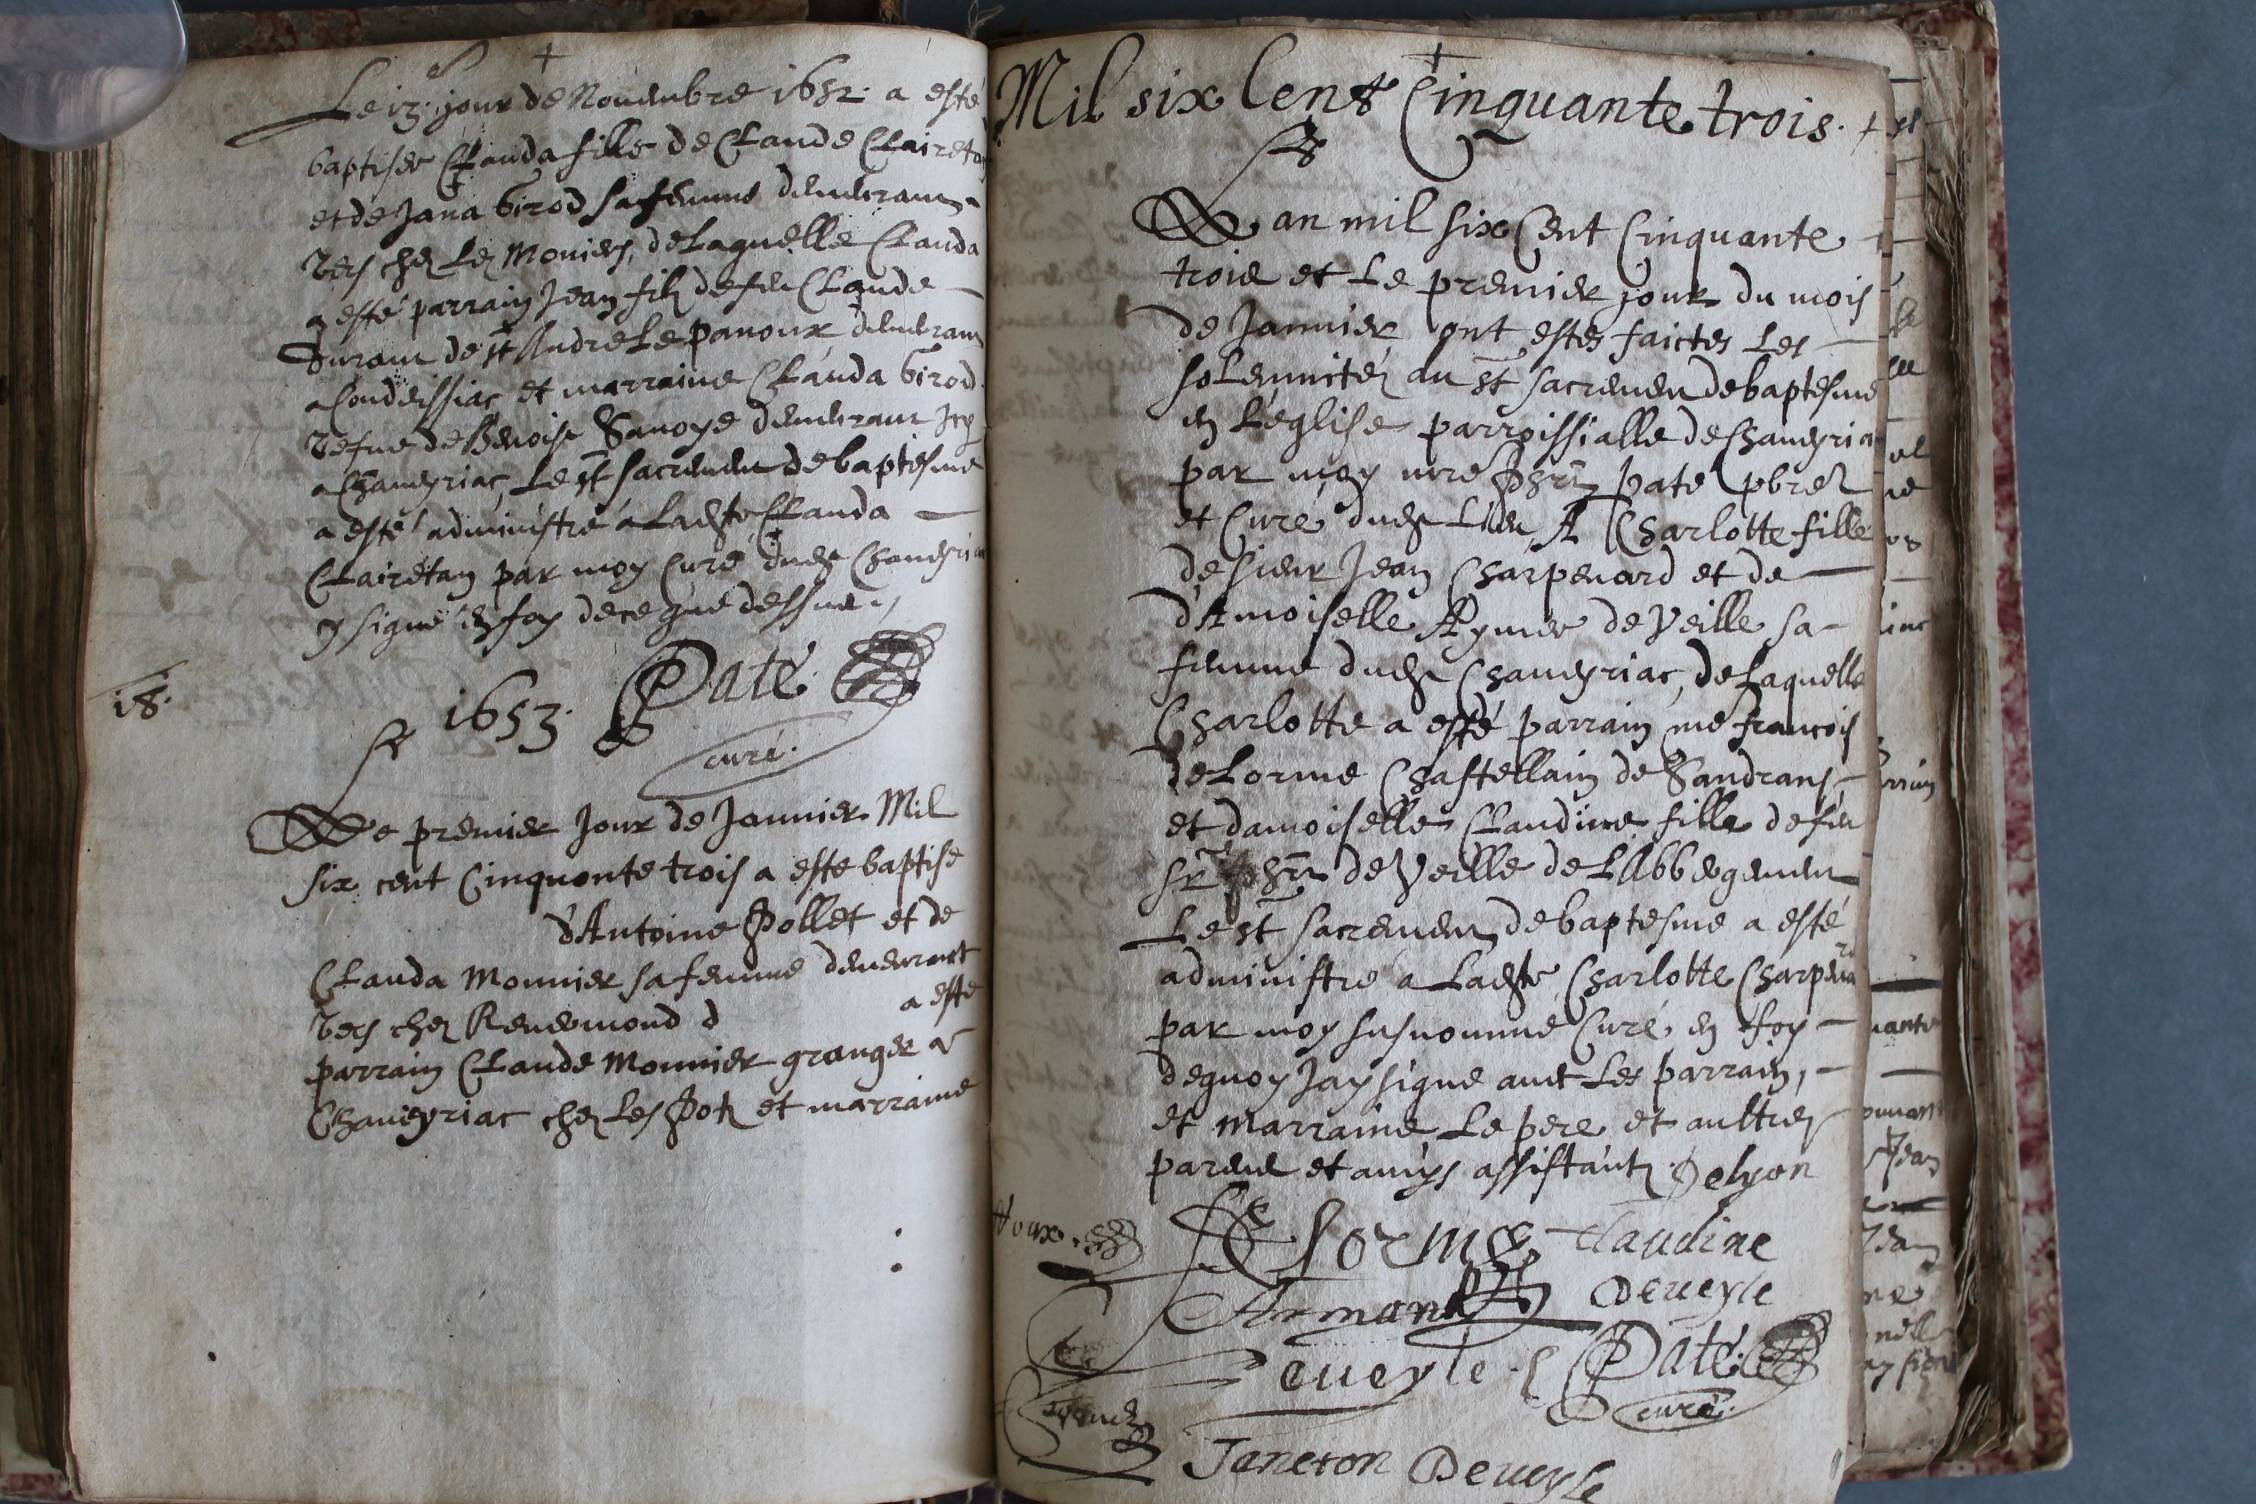 Le 13 jour de Novembre 1652 a esté
baptisée Clauda fille de Claude Clairetan
et de Jana Girod sa femme demeurans
vers chez les Moniers, de laquelle Clauda
a esté parrain Jean filz de feu Claude
Durant de st André le panoux demeurant
a Condeissiac et marraine Clauda Girod
vefue de Benoist Sauoye demeurant
a Chaueyriac, Le st sacrement de baptesme
a esté administré a ladte Clauda
Clairetan par moy Curé dudt Chaueyriac
signé en foy de ce que dessus
1653. Paté
18.
curé.
Le premier Jour de Januier Mil
six cent Cinquante trois a este baptise
d'Antoine Pollet et de
Clauda Monnier sa femme demeurant
vers chez Reuermond d a este
parrain Claude Monnier granger a
Chaueyriac chez les Potz et marraine
Mil six Cents Cinquante trois.
Lan mil six Cent Cinquante
trois et Le premier jour du mois
de Januier ont estes faictes Les
solemnitéz du st sacrement de baptesme
en L'eglise parroissialle de Chaueyriac
par moy mre Phr Paté pbre
et Curé dudt Lieu, A Charlotte fille
de sieur Jean Charpenard et de
dAmoiselle Aymee de Veille sa
femme dudt Chaueyriac, de Laquelle
Charlotte a esté parrain me francois
deLorme Chastellain de Sandrans
et damoiselle Claudine fille de feu
sr Phr de Veille de LAbbergement
Le st sacrement de baptesme a esté
administré a Ladte Charlotte Charpenard
par moy susnommé Curé en foy
dequoy Jay signé auec Les parrain,
et marraine Le pere et aultres
parens et amys assistantz. Delyon
DeLorme Claudine
Armand Deueyle
Deueyle Paté
curé.
Janeton Deueyle